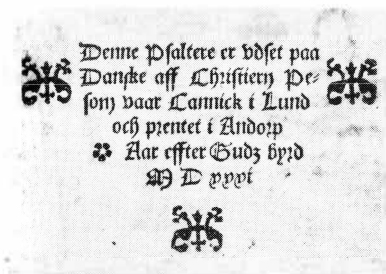 Denne Psaltere er vdset paa
Danske aff Christiern Pe-
son vaar Cannick i Lund
och prentet i Andorp
Aar effter Gudz byrd
M D xxxi